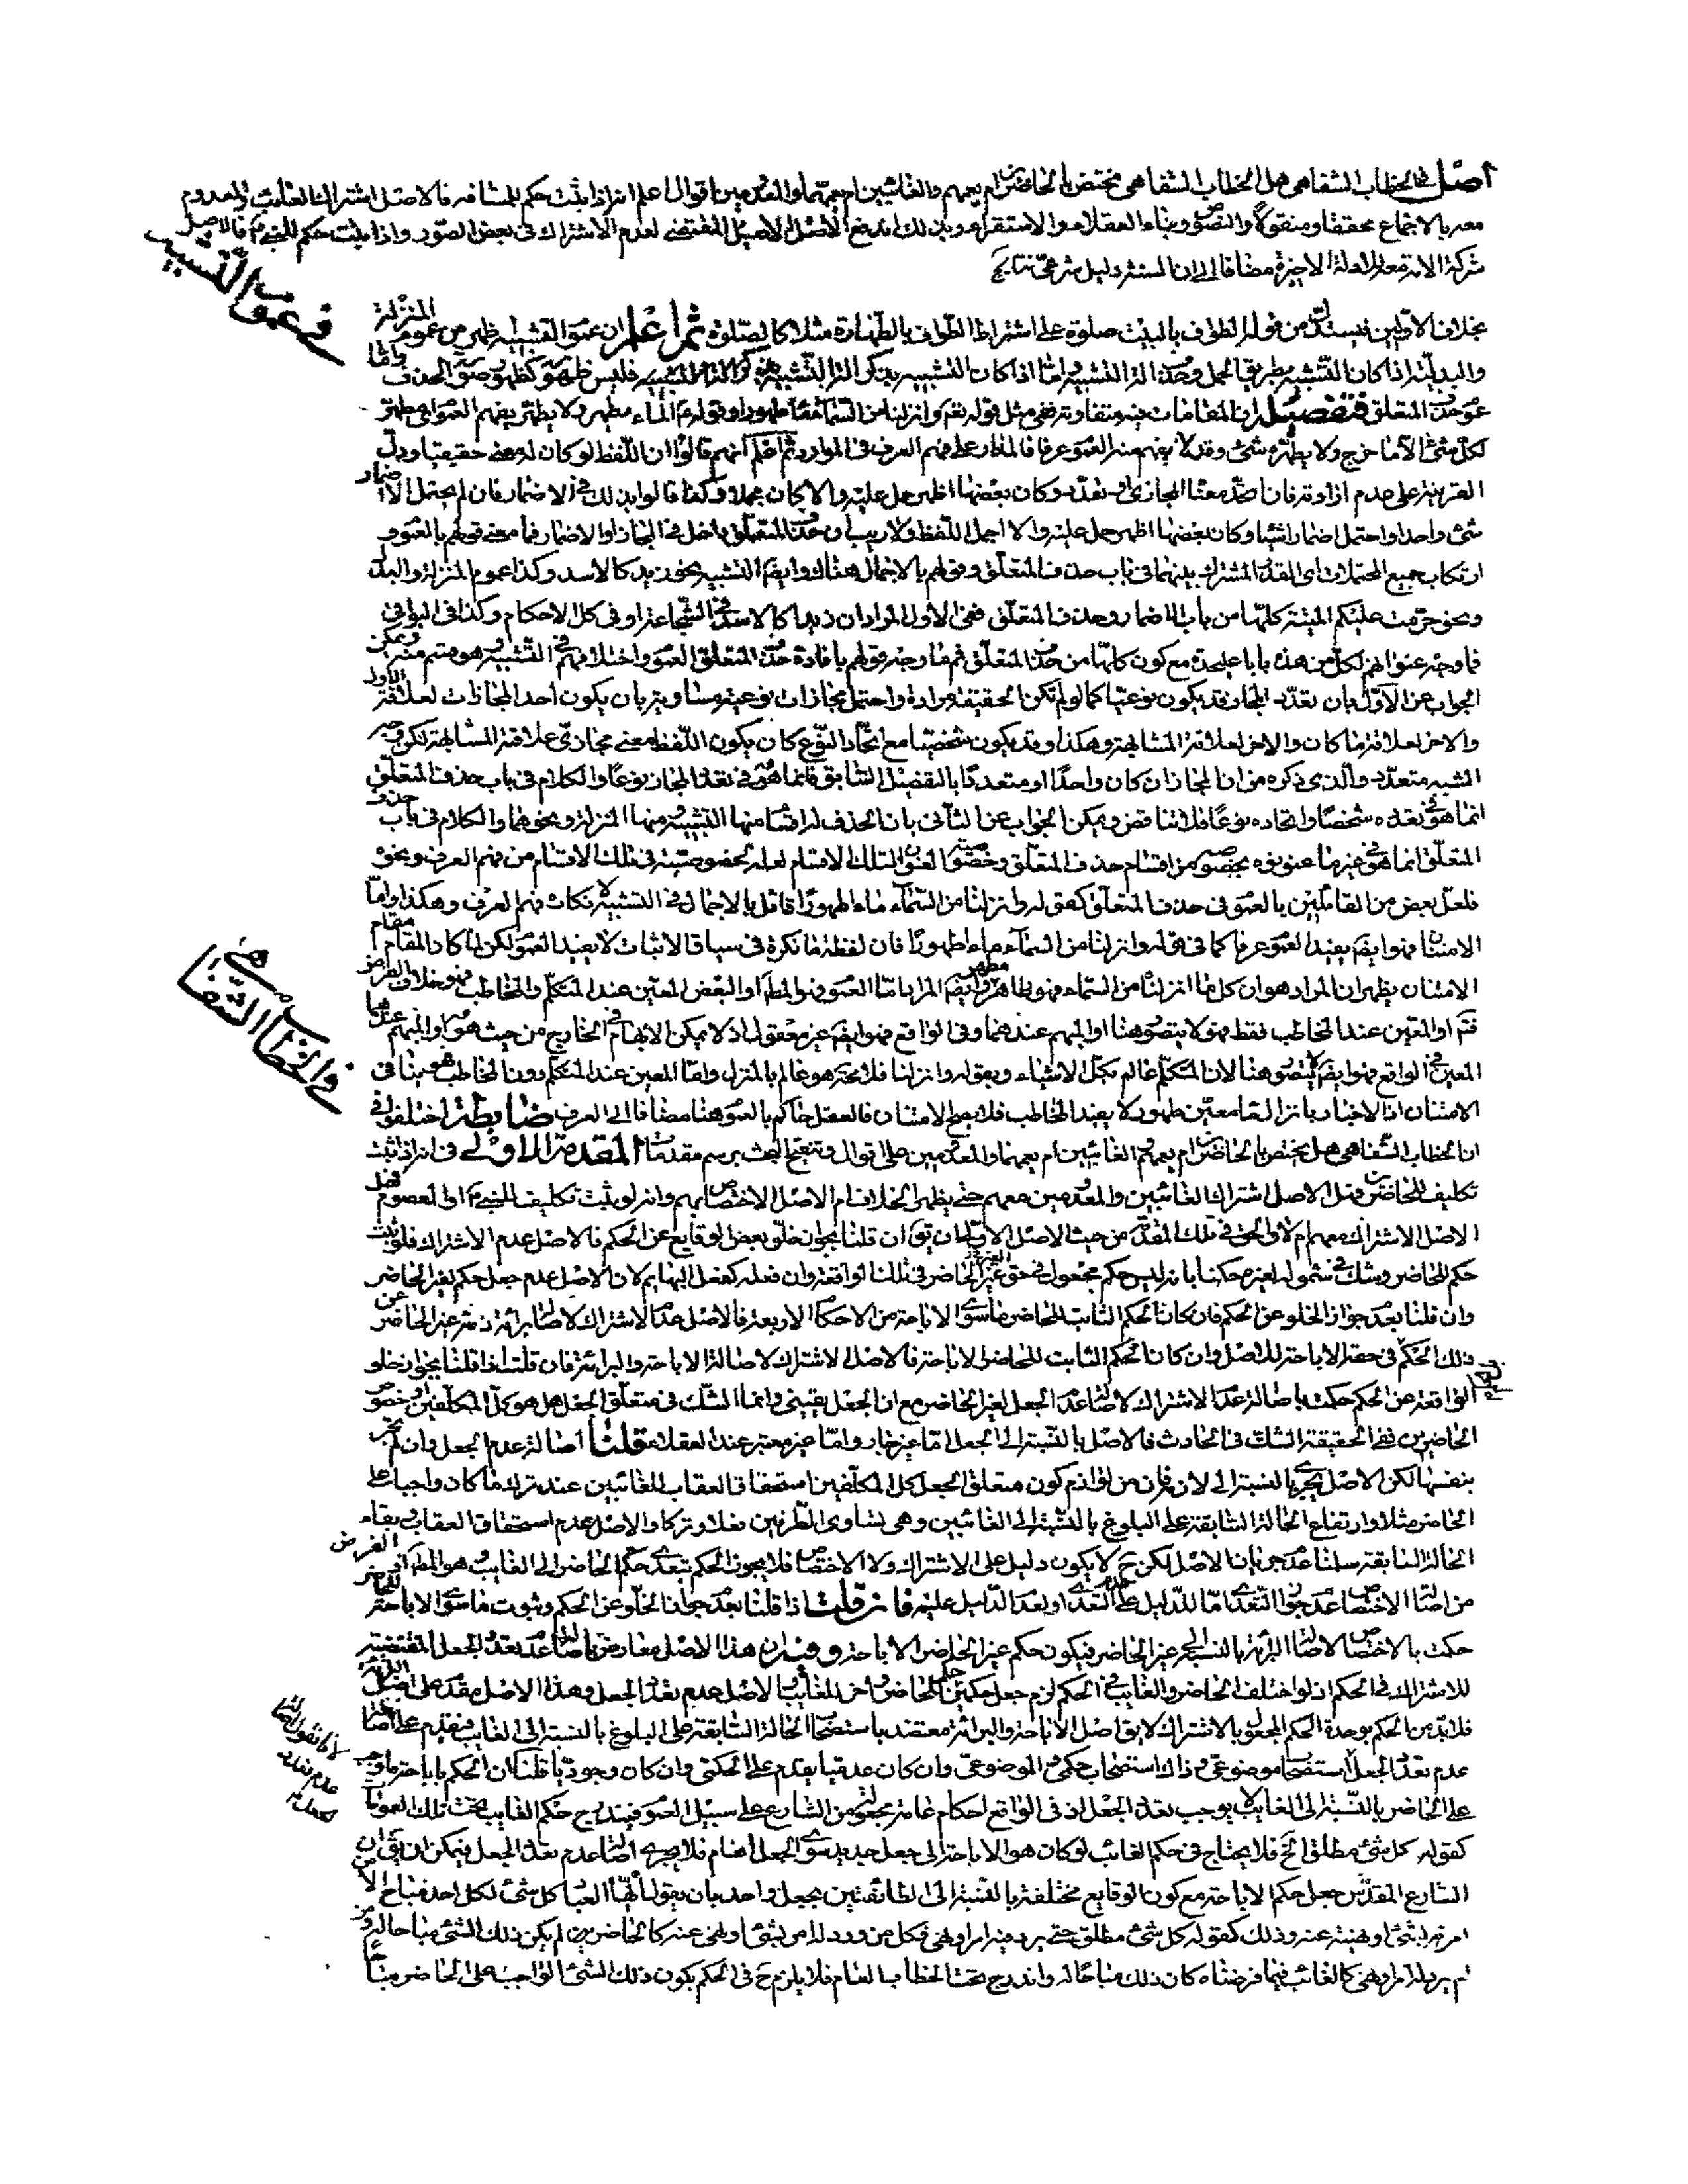 اصل فى الخطاب الشفاهى هل الخطاب الشفاهى مختص بالحاضرين ام يعمهم والغائبين ام يعمهما والمعدومين اقوال اعلم انه اذا ثبت حكم للمشافه فالاصل اشتراك الغائب والمعدوم
معه بالاجماع محققا ومنقولا والنصوص وبناء العقلاء والاستقراء وبذلك يندفع الاصل الاصيل المقتضى لعدم الاشتراك فى بعض الصور واذا ثبت حكم للنبى فالاصل
شركة الامة معه للادلة الاخيرة مضافا الى ان
فى عموم التشبيه
بخلاف الاولين فيستدل من قوله الطواف بالبيت صلوة على اشتراط الطواف بالطهارة مثلا كالصلوة ثم اعلم ان عموم التشبيه اظهر من عموم المنزلة
والبدلية اذا كان التشبيه بطريق الحمل وحذف اداة التشبيه واما اذا كان التشبيه بذكر اداة التشبيه فليس ظهوره كظهور صور الحذف واما
عموم حذف المتعلق فتفصيله ان المقامات فيه متفاوتة ففى مثل قوله تعالى وانزلنا من السماء ماء طهورا وقوله الماء مطهر ولا يطهر يفهم العموم اى مطهر
لكل شئ الا ما خرج ولا يطهره شئ وقد لا يفهم منه العموم عرفا فالمدار على فهم العرف فى الموارد ثم اعلم انهم قالوا ان اللفظ لو كان له معنى حقيقى ودل
القرينة على عدم ارادته فان اتحد معناه المجازى او تعدد وكان بعضها اظهر حمل عليه والا كان مجملا وكذا قالوا بذلك فى الاضمار فان لم يحتمل الا اضمار
شئ واحد او احتمل اضمار اشياء وكان بعضها اظهر حمل عليه والا اجمل اللفظ ولا ريب ان حذف المتعلق داخل فى المجاز او الاضمار فما معنى قولهم بالعموم و
ارتكاب جميع المحتملات اى القدر المشترك بينهما فى باب حذف المتعلق وقولهم بالاجمال هناك وايضا التشبيه نحو زيد كالاسد وكذا عموم المنزلة والبدل
ونحو حرمت عليكم الميتة كلها من باب الاضمار وحذف المتعلق ففى الاول المراد ان زيدا كالاسد فى الشجاعة او فى كل الاحكام وكذا فى البواقى
فما وجه عنوانهم لكل من هذه بابا عليحدة مع كون كلها من حذف المتعلق ثم ما وجه قولهم بافادة حذف المتعلق العموم واختلافهم فى التشبيه هو قسم منه ويمكن
الجواب عن الاول بان تعدد المجاز قد يكون نوعيا كما لو لم تكن الحقيقة مرادة واحتمل مجازات نوعية متساوية بان يكون احد المجازات لعلاقة الاول
والاخر لعلاقة ما كان والاخر لعلاقة المشابهة وهكذا وقد يكون شخصيا مع اتحاد النوع كان يكون اللفظ معنى مجازى علاقته المشابهة لكن وجه
الشبه متعدد والذى ذكره من ان المجاز ان كان واحدا او متعددا بالتفصيل السابق فانما هو فى تعدد المجاز نوعا والكلام فى باب حذف المتعلق
انما هو فى تعدده شخصا واتحاده نوعا فلا تناقض ويمكن الجواب عن الثانى بان الحذف له اقسام منها التشبيه ومنها المنزلة ونحوهما والكلام فى باب حذف
المتعلق انما هو فى غير ما عنونوه بخصوصه من اقسام حذف المتعلق وخصوا العنوان لتلك الاقسام لعله لخصوصية فى تلك الاقسام من فهم العرف ونحوه
فلعل بعض من القائلين بالعموم فى حذف المتعلق كقوله وانزلنا من السماء ماء طهورا قائل بالاجمال فى التشبيه لانكار فهم العرف وهكذا واما مقام
الامتنان فهو ايضا يفيد العموم عرفا كما فى قوله وانزلنا من السماء ماء طهورا فان لفظة ماء نكرة فى سياق الاثبات لا يفيد العموم لكن لما كان المقام مقام
الامتنان يظهر ان المراد هو ان كل ما انزلناه من السماء فهو طاهر مطهر وايضا المراد اما العموم فهو المط او البعض المعين عند المتكلم والمخاطب فهو خلاف الفرض
فتم او المعين عند المخاطب فقط فهو لا يتصور هنا او المبهم عندهما وفى الواقع فهو ايضا غير معقول اذ لا يمكن الابهام فى الخارج من حيث هو او المبهم عندهما
المعين فى الواقع فهو ايضا لا يتصور هنا لان المتكلم عالم بكل الاشياء وبقوله وانزلنا فلا محة هو عالم بالمنزل واما المعين عند المتكلم دون المخاطب فهو ينافى
الامتنان اذ الاخبار بانزال ماء معين طهور لا يفيد المخاطب فلا يصح الامتنان فالعقل حاكم بالعموم هنا مضافا الى العرف ضابطة اختلفوا فى
فى الخطاب الشفاهى
ان الخطاب الشفاهى هل يختص بالحاضرين ام يعمهم والغائبين ام يعمهما والمعدومين على اقوال وتنقيح البحث برسم مقدمات المقدمة الاولى فى انه اذا ثبت
تكليف للحاضرين فهل الاصل اشتراك الغائبين والمعدومين معهم حتى يظهر الخلاف ام الاصل الاختصاص بهم وانه لو ثبت تكليف للنبى او المعصوم فهل
الاصل الاشتراك معهم ام لا والحق فى تلك المقدمة من حيث الاصل الاولى ان يق ان قلنا بجواز خلو بعض الوقايع عن الحكم فالاصل عدم الاشتراك فلو ثبت
حكم للحاضر وشك فى شموله لغيره حكمنا بانه ليس حكم مجعول فى حق غير الحاضر فى تلك الواقعة وان فعله كفعل البهايم لان الاصل عدم جعل حكم لغير الحاضر
وان قلنا بعدم جواز الخلو عن الحكم فان كان الحكم الثابت للحاضر ما سوى الاباحة من الاحكام الاربعة فالاصل عدم الاشتراك لاصالة برائة ذمة غير الحاضر عن
ذلك الحكم فى حقه الاباحة للاصل وان كان الحكم الثابت للحاضر الاباحة فالاصل الاشتراك لاصالة الاباحة والبرائة فان قلت اذا قلنا بجواز خلو
الواقعة عن الحكم حكمت باصالة عدم الاشتراك لاصالة عدم الجعل لغير الحاضر مع ان الجعل يقينى وانما الشك فى متعلق الجعل هل هو كل المكلفين او خصوص
الحاضرين ففى الحقيقة الشك فى الحادث فالاصل بالنسبة الى الجعل اما غير جار واما غير معتبر عند العقلاء قلنا اصالة عدم الجعل وان لم تجر
بنفسها لكن الاصل يجرى بالنسبة الى لازم فان من لوازم كون متعلق الجعل كل المكلفين استحقاق العقاب للغائبين عند ترك ما كان واجبا على
الحاضر مثلا وارتفاع الحالة السابقة على البلوغ بالنسبة الى الغائبين وهى تساوى الطرفين فعلا وتركا والاصل عدم استحقاق العقاب وبقاء
الحالة السابقة سلمنا عدم جريان الاصل لكن ح لا يكون دليل على الاشتراك ولا الاختصاص فلا يجوز الحكم بتعدى حكم الحاضر الى الغايب وهو المط اذ الغرض
من اصالة الاختصاص عدم جواز التعدى اما للدليل على عدم التعدى او لعدم الدليل عليه فان قلت اذا قلنا بعدم جواز الخلو عن الحكم وثبوت ما سوى الاباحة للحاضر
حكمت بالاختصاص لاصالة البرائة بالنسبة الى غير الحاضر فيكون حكم غير الحاضر الاباحة وفيه ان هذا الاصل معارض باصالة عدم تعدد الجعل المقتضية
للاشتراك فى الحكم اذ لو اختلف الحاضر والغايب فى الحكم لزم جعل حكمين حكم للحاضر واخر للغايب والاصل عدم تعدد الجعل وهذا الاصل مقدم على اصل البرائة
فلا بد من الحكم بوحدة الحكم المجعول وبالاشتراك لا يق اصل الاباحة والبرائة معتضد باستصحاب الحالة السابقة على البلوغ بالنسبة الى الغايب فيقدم على اصالة
لانا نقول اصالة
عدم تعدد
الجعل
عدم تعدد الجعل استصحاب موضوعى وذاك استصحاب حكمى والموضوعى وان كان عدميا يقدم على الحكمى وان كان وجوديا قلنا ان الحكم باباحة ما وجب
على الحاضر بالنسبة الى الغايب لا يوجب تعدد الجعل اذ فى الواقع احكام عامة مجعولة من الشارع على سبيل العموم فيندرج حكم الغايب تحت تلك العمومات
كقوله كل شئ مطلق الخ فلا يحتاج فى حكم الغائب لو كان هو الاباحة الى جعل جديد سوى الجعل العام فلا يجرى اصالة عدم تعدد الجعل فيمكن ان يق ان
الشارع المقدس جعل حكم الاباحة مع كون الوقايع مختلفة بالنسبة الى الطائفتين بجعل واحد بان يقول ايها العباد كل شئ لكل احد مباح الا من
امرته بشئ او نهيته عنه وذلك كقوله كل شئ مطلق حتى يرد فيه امر او نهى فكل من ورد له امر بشئ او نهى عنه كالحاضرين لم يكن ذلك الشئ مباحا له ومن
لم يرد له امر او نهى كالغائب فيما فرضناه كان ذلك مباحا له واندرج تحت الخطاب العام فلا يلزم ح فى الحكم بكون ذلك الشئ الواجب على الحاضر مباحا